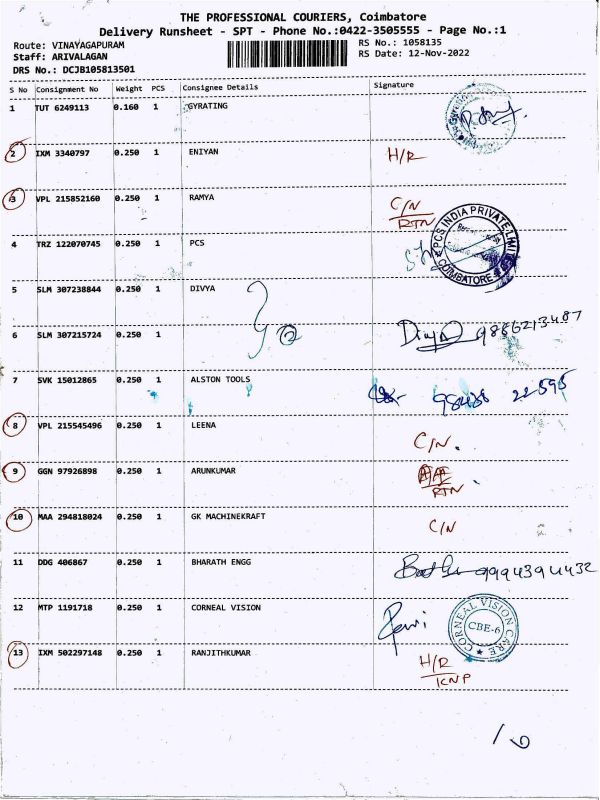 THE PROFESSIONAL COURIERS, Coimbatore
Delivery Runsheet - SPT - Phone No.:0422-3505555 - Page No.:1
Route: VINAYAGAPURAM
RS No.: 1058135
Staff: ARIVALAGAN
RS Date: 12-Nov-2022
DRS No.: DCJB105813501
S No Consignment No Weight PCS Consignee Details Signature
1 TUT 6249113 0.160 1 GYRATING
2 IXM 3340797 0.250 1 ENIYAN H/R
3 VPL 215852160 0.250 1 RAMYA C/N
RTN
4 TRZ 122070745 0.250 1 PCS
PCS INDIA PRIVATE LIMITED
COIMBATORE
5 SLM 307238844 0.250 1 DIVYA
2
6 SLM 307215724 0.250 1 Divya 9886213487
7 SVK 15012865 0.250 1 ALSTON TOOLS 98438 22595
8 VPL 215545496 0.250 1 LEENA C/N.
9 GGN 97926898 0.250 1 ARUNKUMAR
RTN
10 MAA 294818024 0.250 1 GK MACHINEKRAFT C/N
11 DDG 406867 0.250 1 BHARATH ENGG 9994394432
12 MTP 1191718 0.250 1 CORNEAL VISION
CORNEAL VISION CARE
CBE-6
13 IXM 502297148 0.250 1 RANJITHKUMAR H/R
KNP